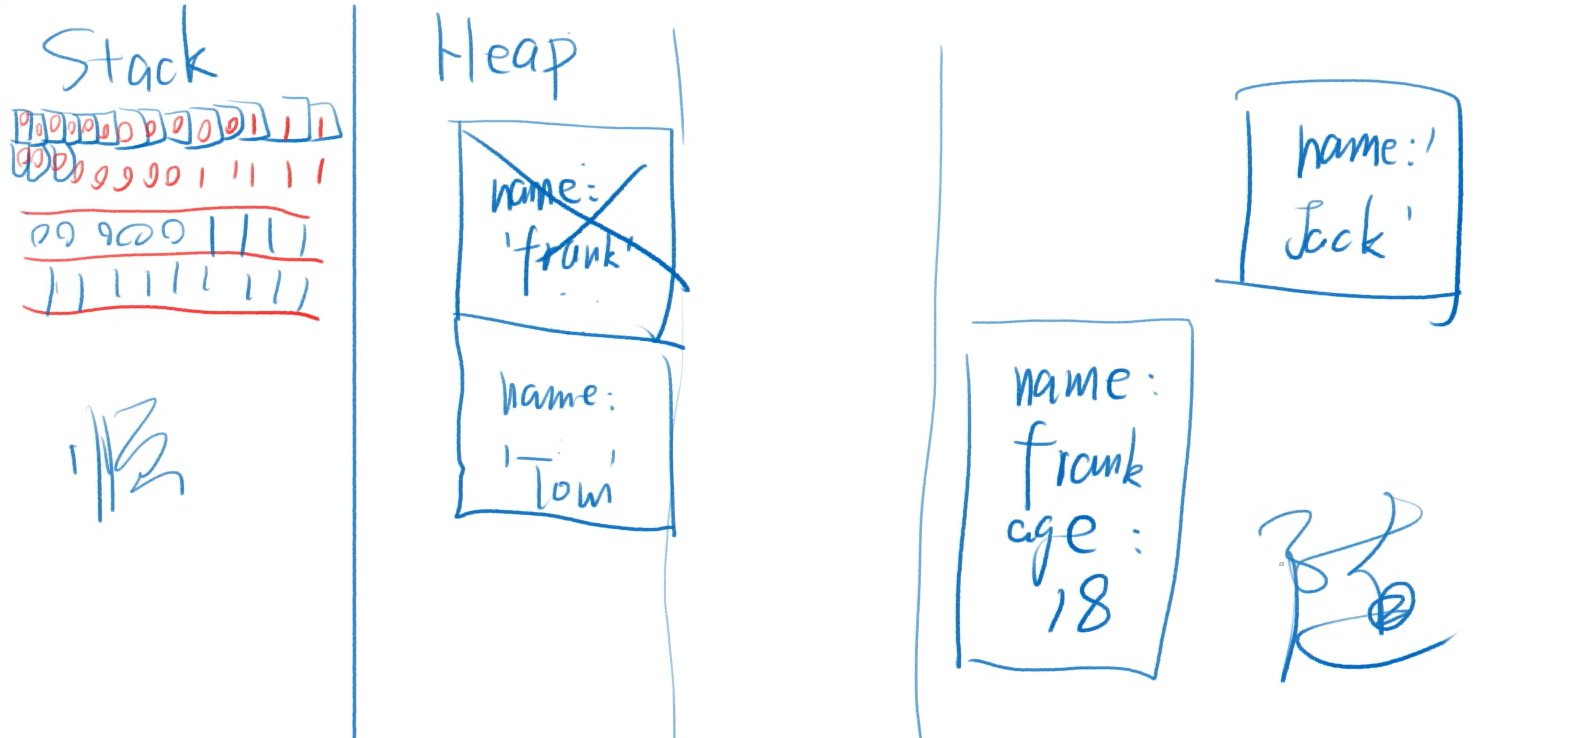 Stack
0000000011111
0000001111
111111111
顺
Heap
name:
'frank'
name:
'Tom'
name:'
Jack'
name:
frank
age:
18
随